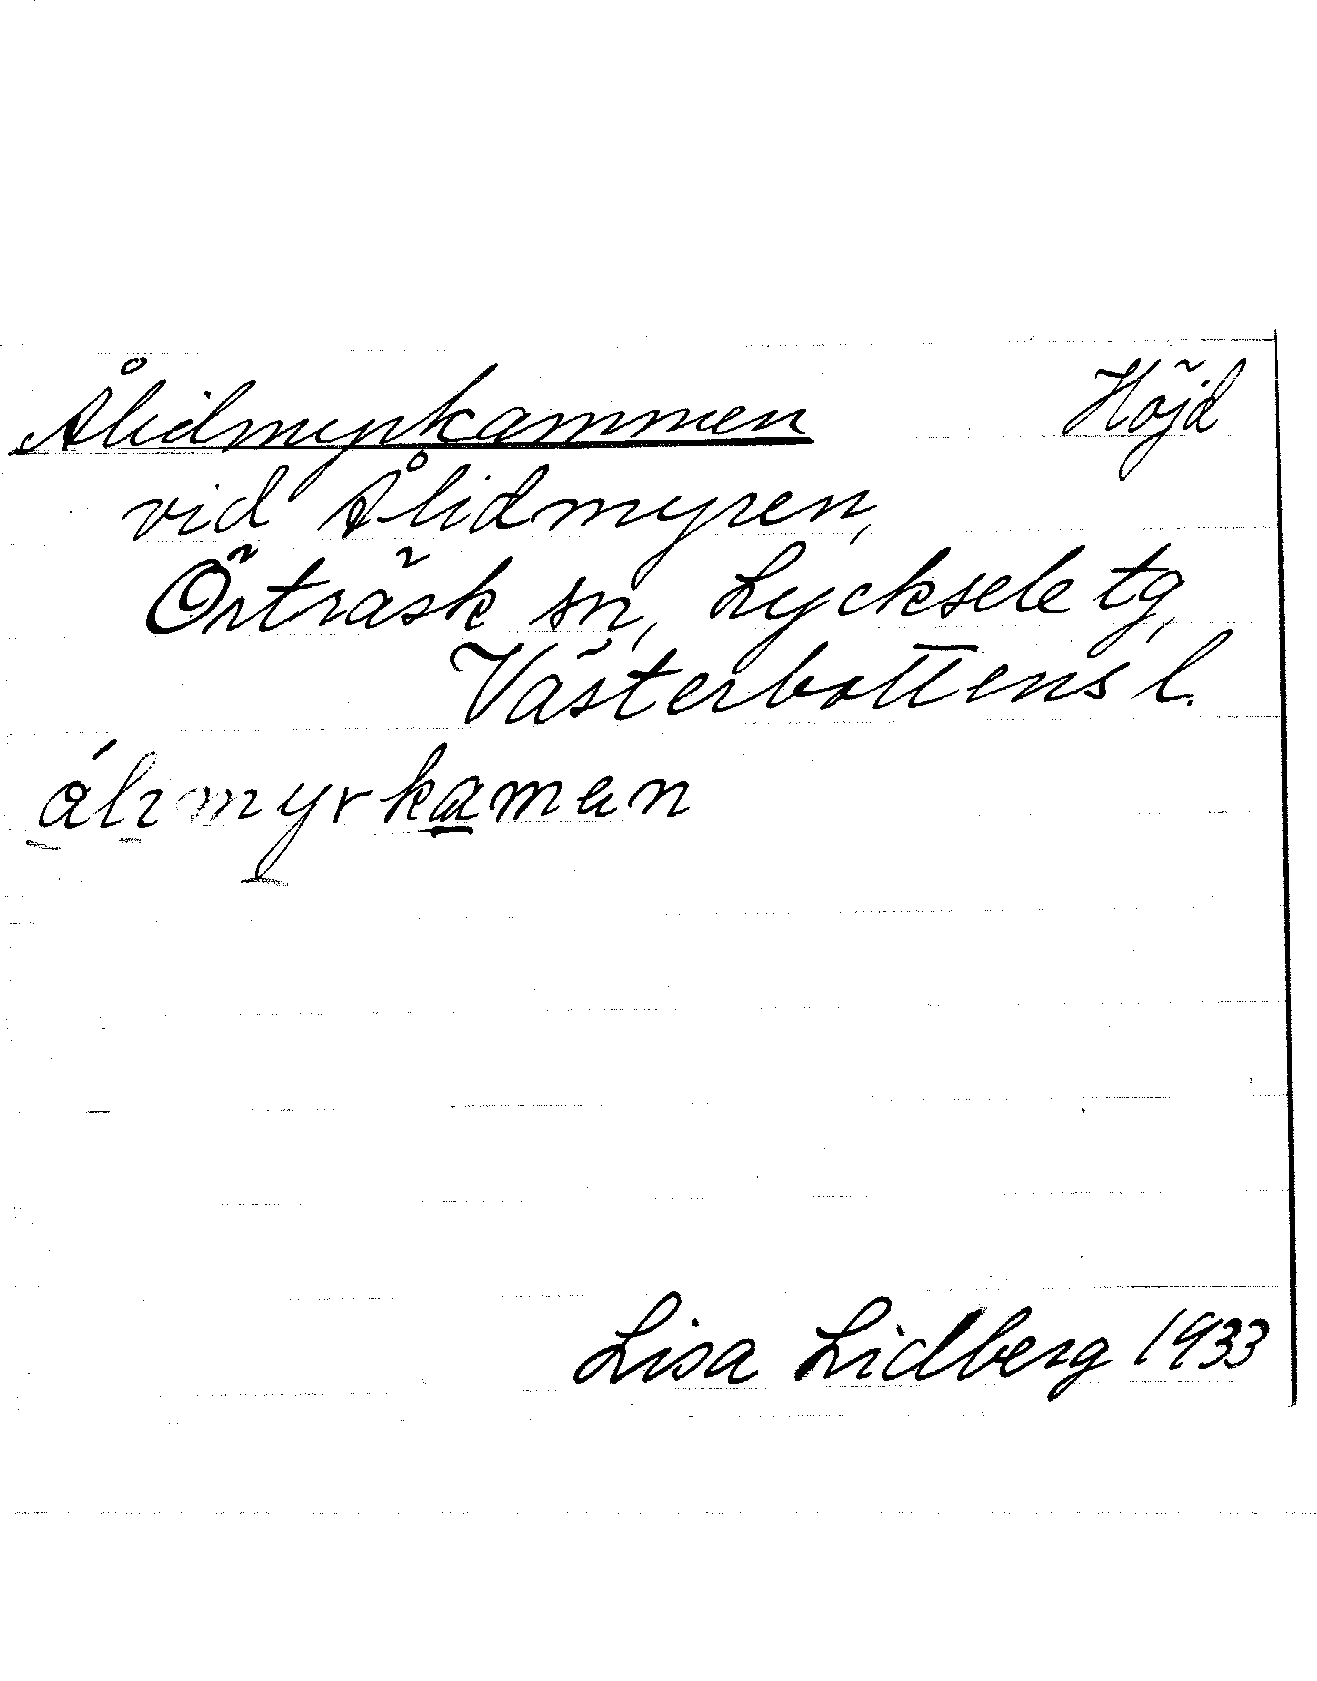 Ålidmyrkammen Höjd
vid Ålidmyren,
Örträsk sn, Lycksele tg,
Västerbottens l.
Lisa Lidberg 1933